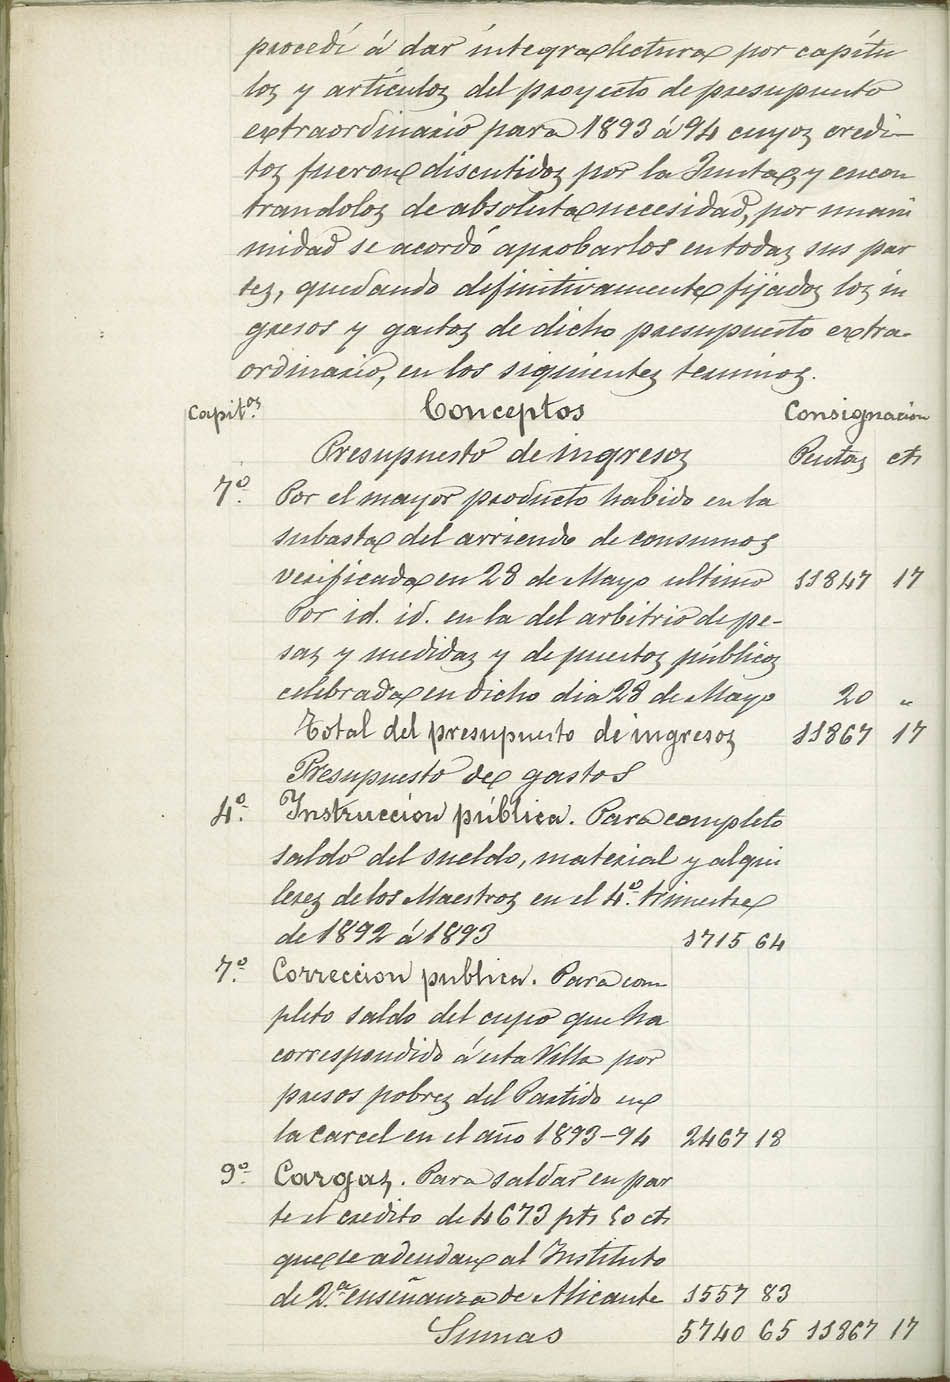 procedí á dar íntegra lectura por capítu
los y artículos del proyecto de presupuesto
extraordinario para 1893 á 94 cuyos crédi-
tos fueron discutidos por la Junta, y encon
trandolos de absoluta necesidad, por unani
midad se acordó aprobarlos en todas sus par
tes, quedando definitivamente fijados los in
gresos y gastos de dicho presupuesto extra-
ordinario, en los siguientes terminos.
Capit.os Conceptos Consignacion
Presupuesto de ingresos Pesetas cts
7º. Por el mayor producto habido en la
subasta del arriendo de consumos
verificada en 28 de Mayo ultimo 11847 17
Por id. id. en la del arbitrio de pe-
sas y medidas y de puestos públicos
celebrada en dicho dia 28 de Mayo 20 "
Total del presupuesto de ingresos 11867 17
Presupuesto de gastos
4º. Instruccion pública. Para completo
saldo del sueldo, material y alqui
leres de los Maestros en el 4º. trimestre
de 1892 á 1893 1715 64
7º. Correccion publica. Para com
pleto saldo del cupo que ha
correspondido á esta Villa por
presos pobres del Partido en
la carcel en el año 1893-94 2467 18
9º. Cargas. Para saldar en par
te el credito de 4673 pts 50 cts
que se adeudan al Instituto
de 2.ª enseñanza de Alicante 1557 83
Sumas 5740 65 11867 17